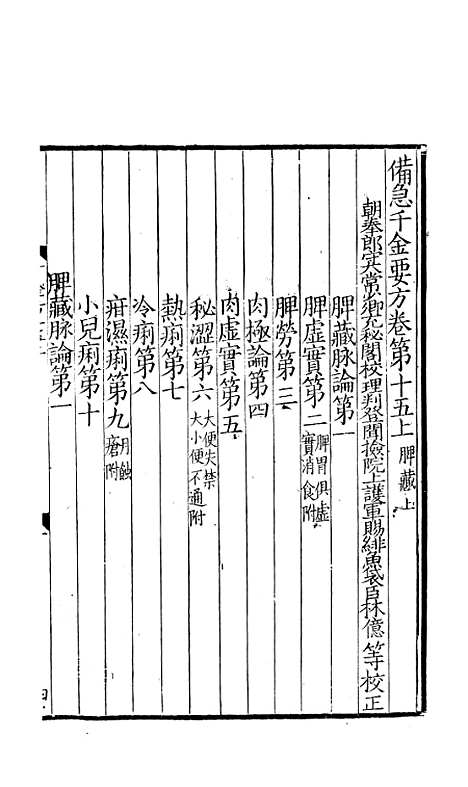 備急千金要方卷第十五上 脾藏上
朝奉郎守太常少卿充秘閣校理判登聞撿院上護軍賜緋魚袋臣林億等校正
脾藏脉論第一
脾虛實第二 脾胃俱虛實消食附
脾勞第三
肉極論第四
肉虛實第五
秘澀第六 大便失禁大小便不通附
熱痢第七
冷痢第八
疳濕痢第九 月蝕瘡附
小兒痢第十
脾藏脉論第一